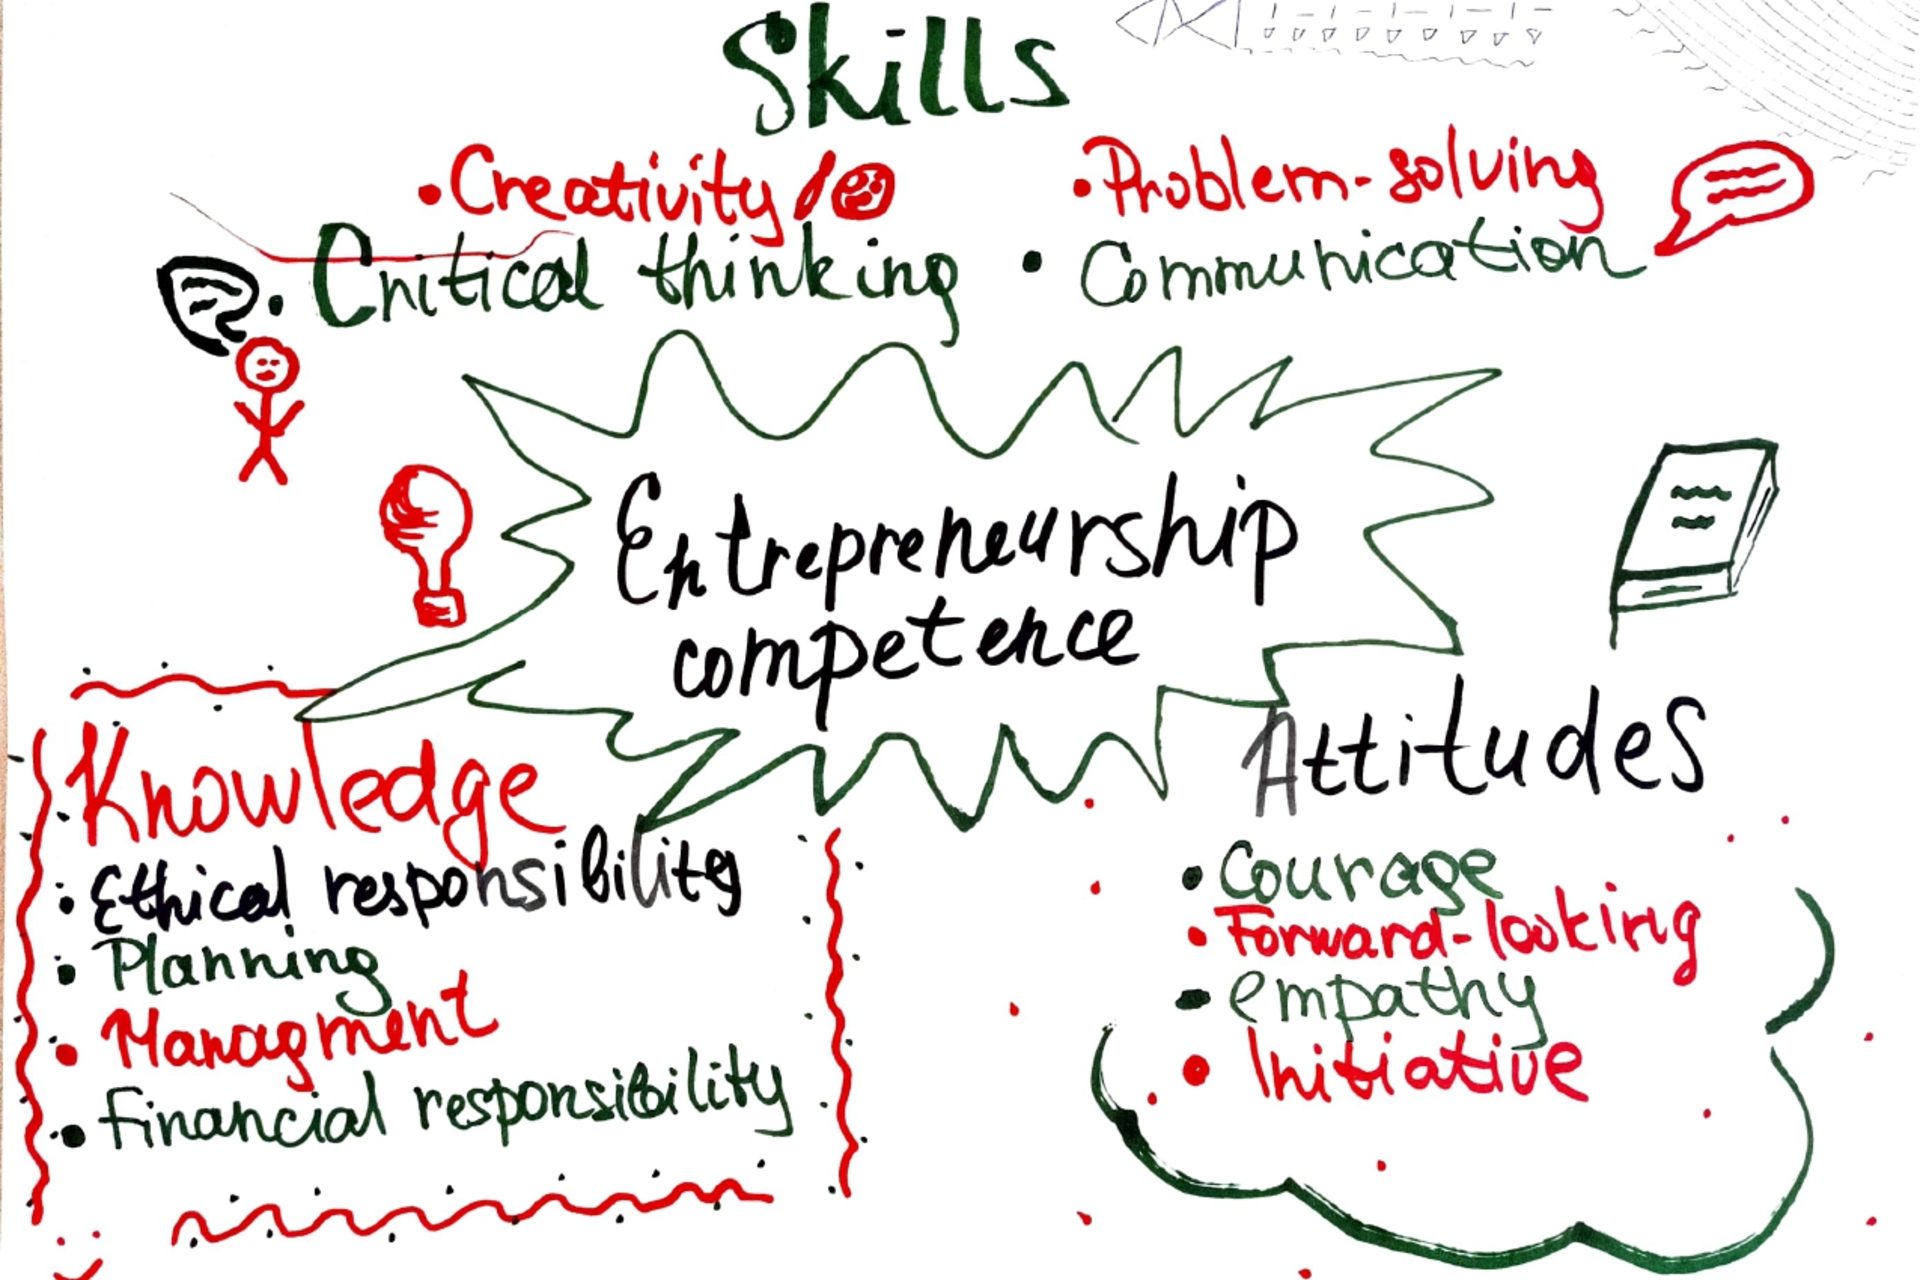 Skills
• Creativity
• Problem-solving
• Critical thinking
• Communication
Entrepreneurship
competence
Knowledge
• Ethical responsibility
• Planning
• Managment
• Financial responsibility
Attitudes
• Courage
• Forward-looking
• empathy
• Initiative